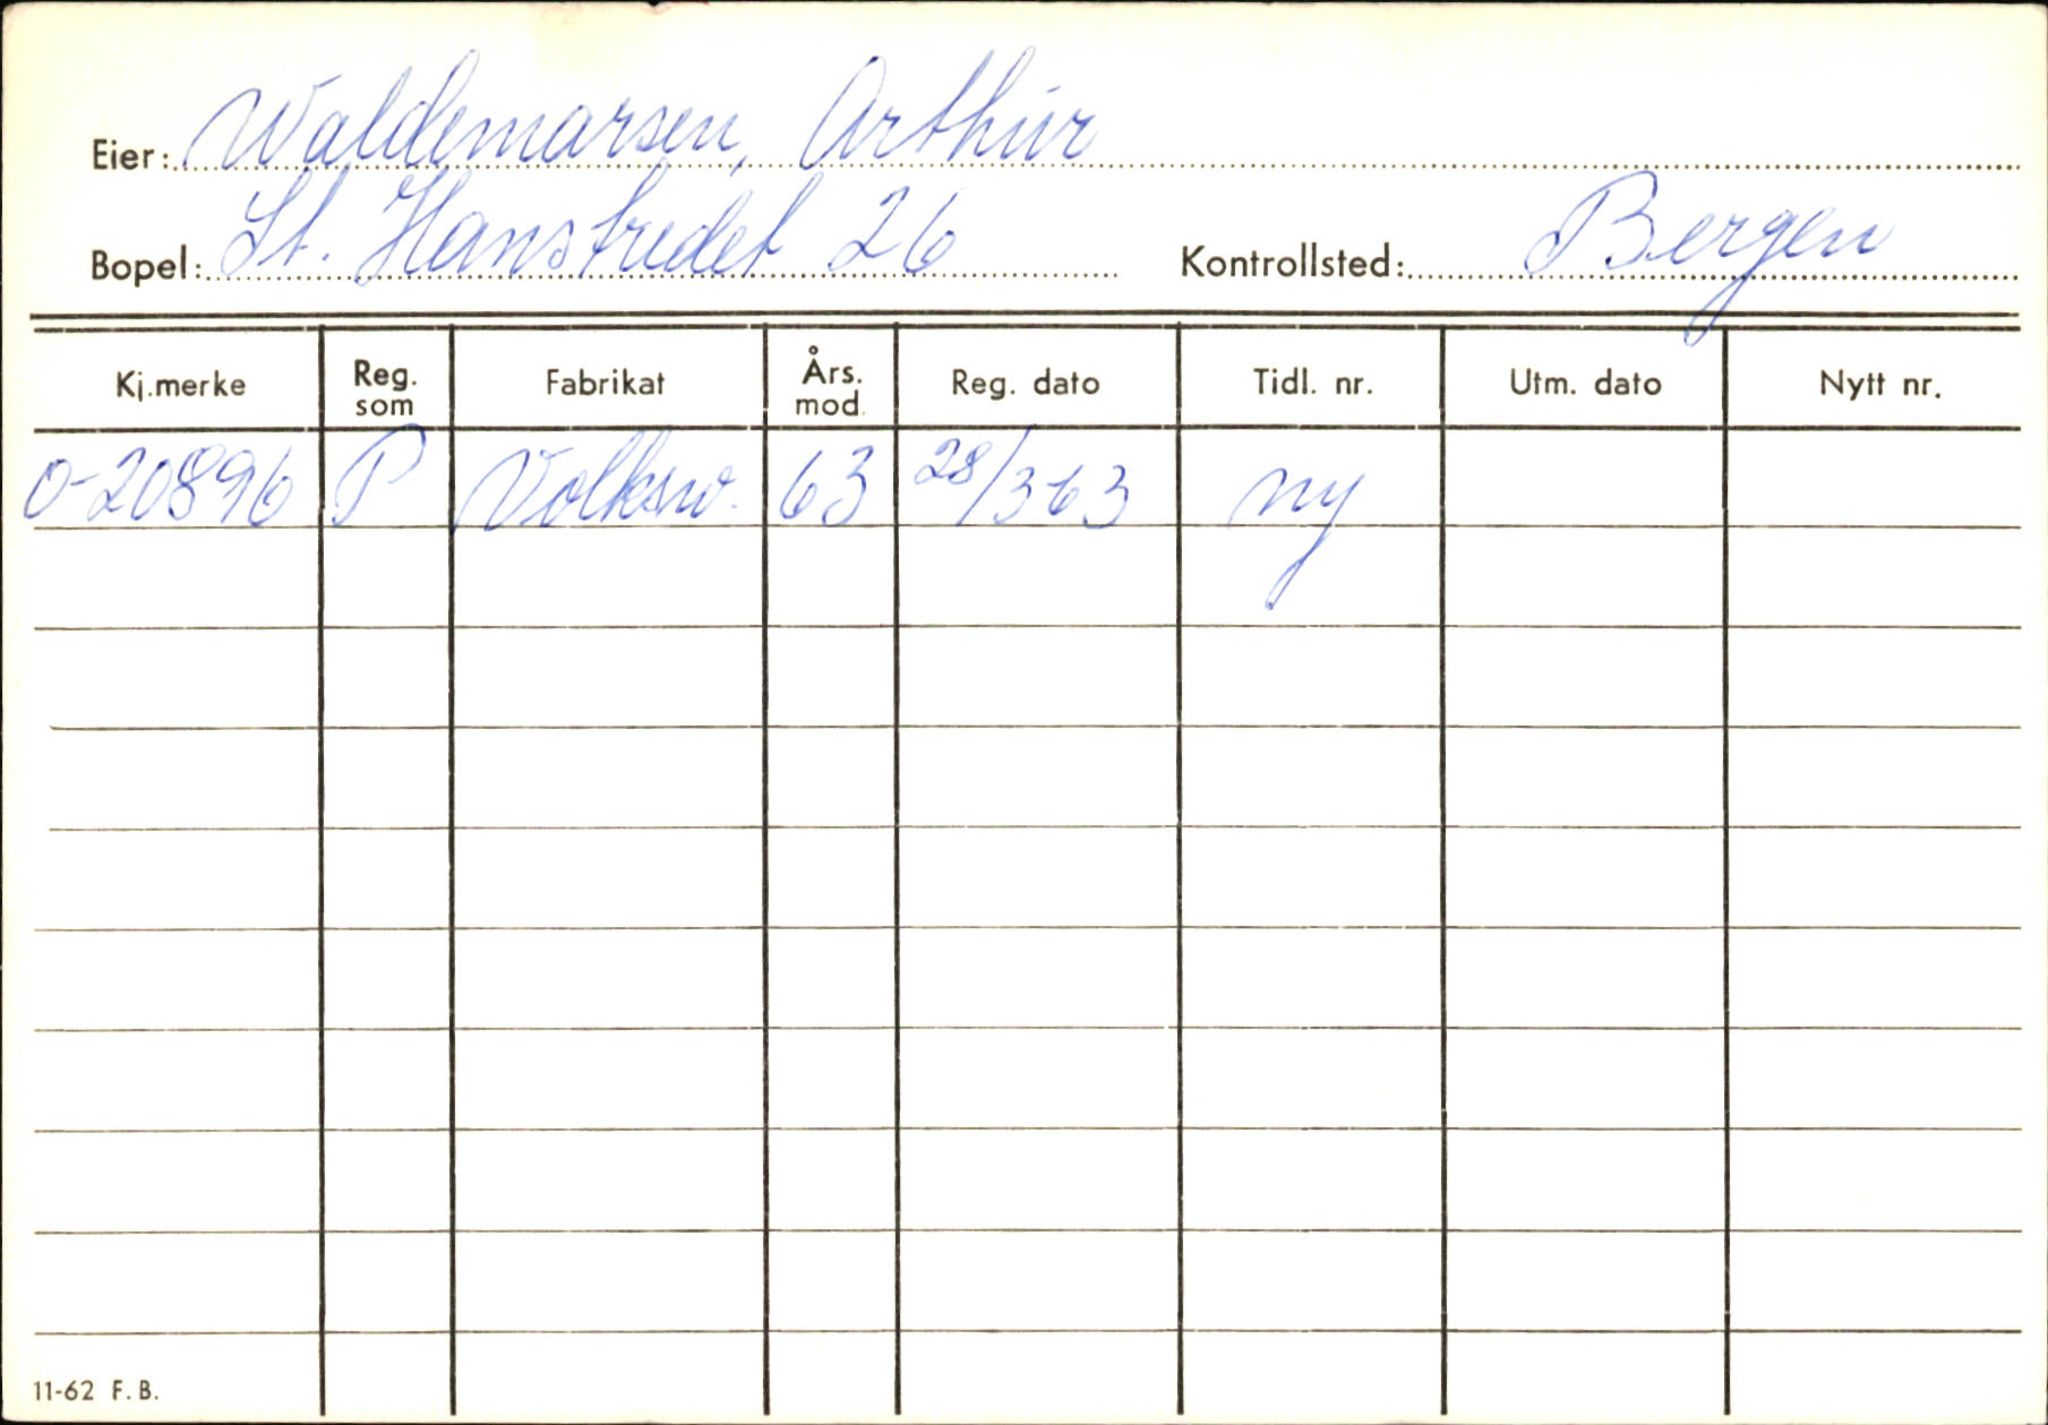 Eier: Waldemarsen, Arthur
Bopel: St. Hanstredet 26 Kontrollsted: Bergen
Kj.merke Reg. som Fabrikat Års. mod. Reg. dato Tidl. nr. Utm. dato Nytt nr.
O-20896 P Volksw. 63 28/3-63 ny
11-62 F.B.